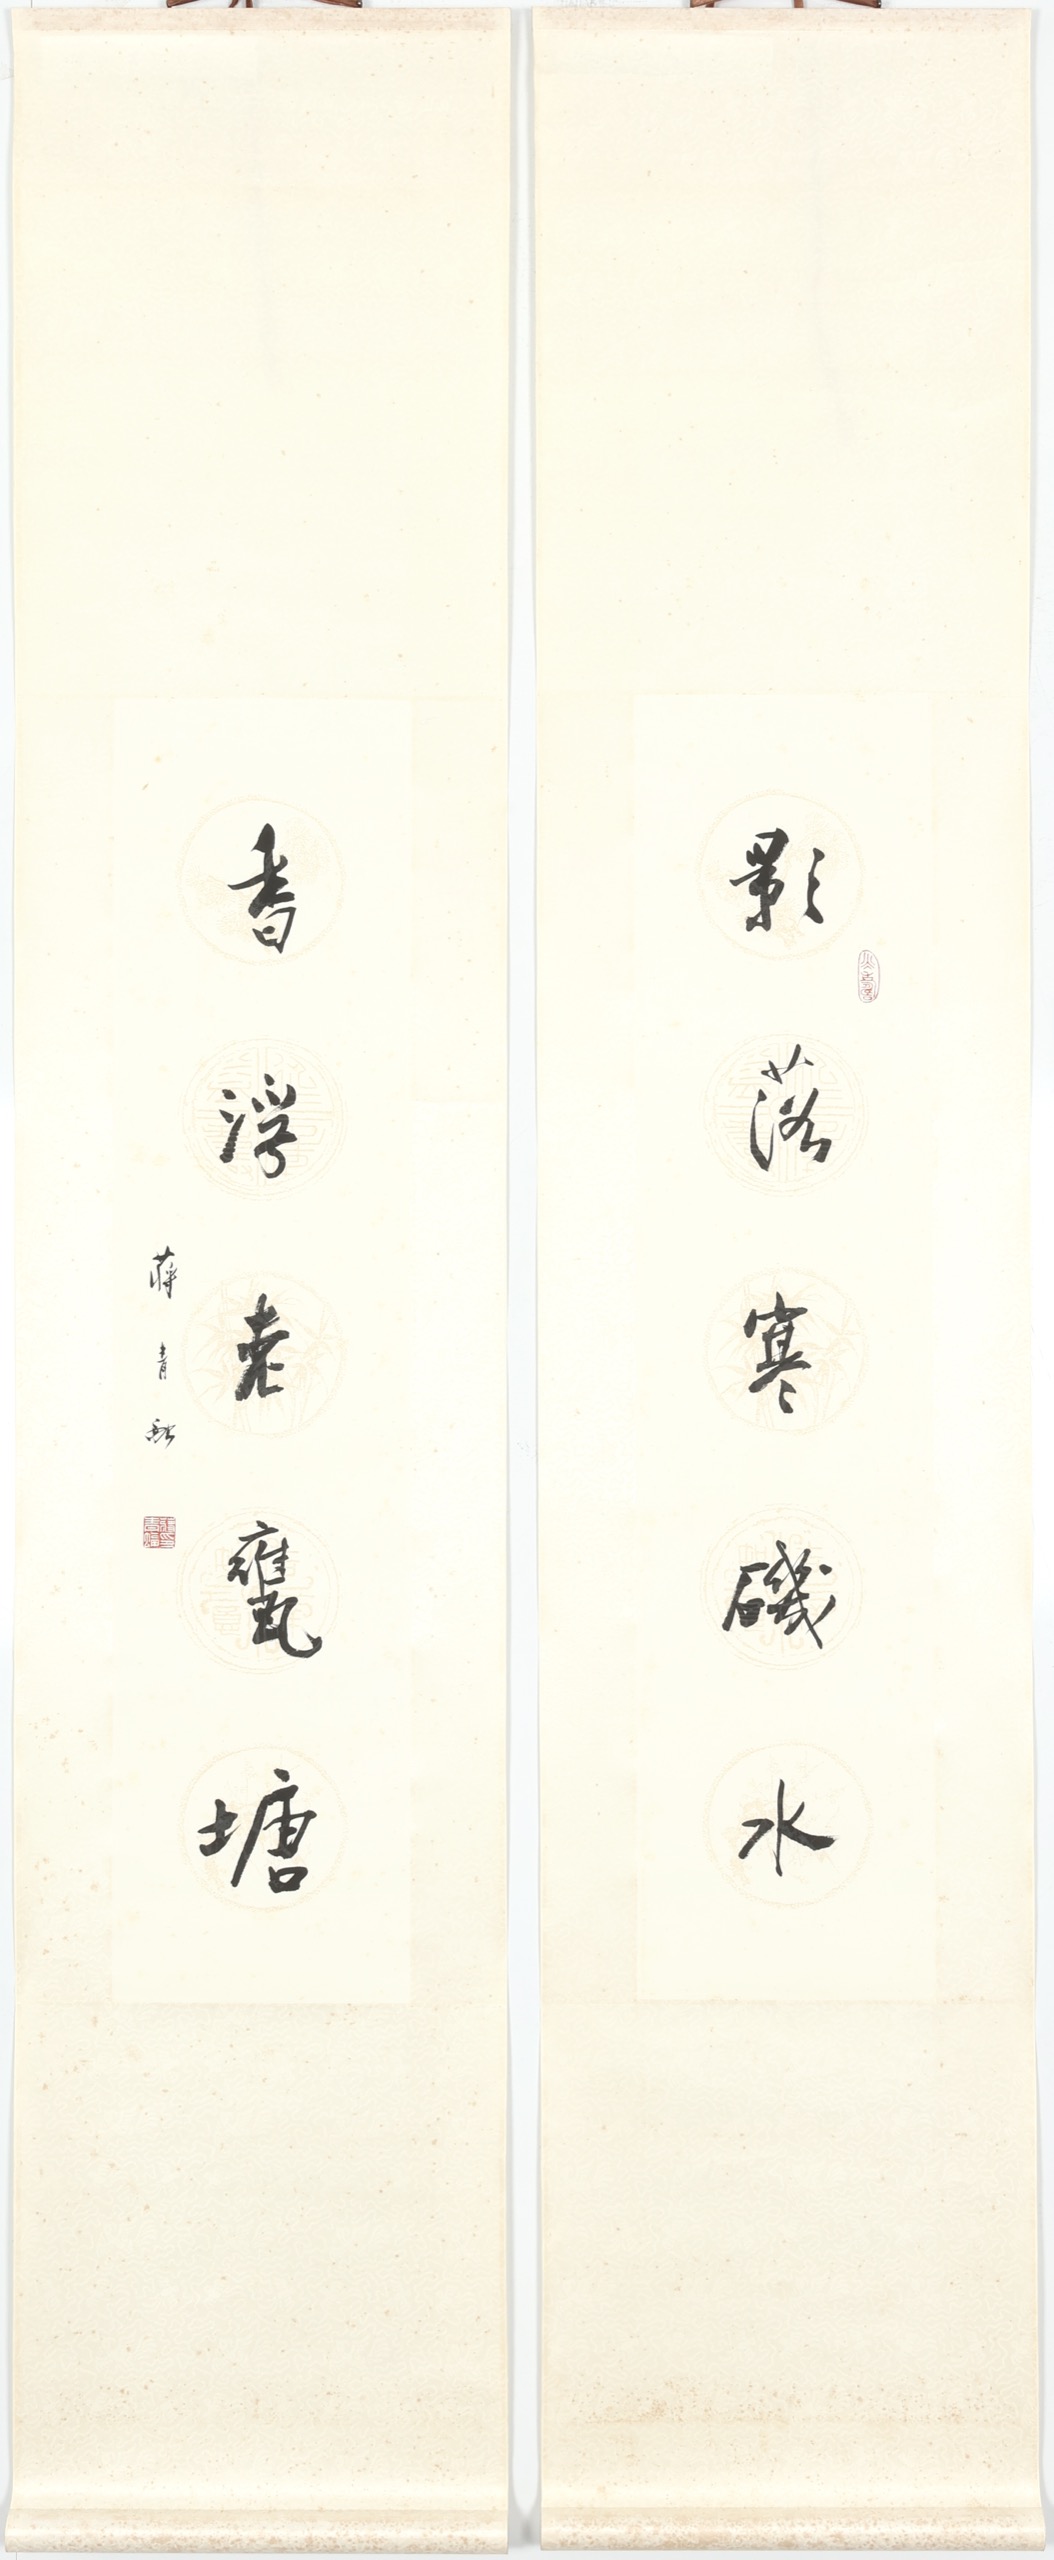 影落寒磯水
香浮老甕塘
蔣青融